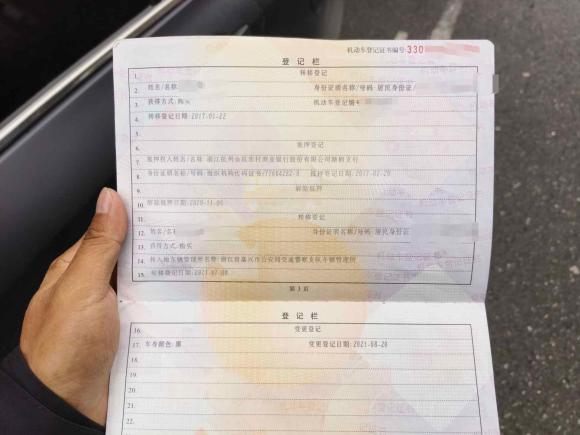 机动车登记证书编号:330
登记栏
1. 转移登记
2. 姓名/名称 身份证明名称/号码:居民身份证/
3. 获得方式:购买 机动车登记编号
4. 转移登记日期:2017-01-22
5.
6. 抵押登记
7. 抵押权人姓名/名称 浙江杭州余杭农村商业银行股份有限公司 支行
8. 身份证明名称/号码 组织机构代码证书 抵押登记日期:2017-02-20
9. 解除抵押
10. 解除抵押日期:2020-11-06
11. 转移登记
12. 姓名/名 身份证明名称/号码:居民身份证
13. 获得方式:购买
14. 转入地车辆管理所名称:浙江省嘉兴市公安局交通警察支队车辆管理所
15. 转移登记日期:2021-07-08
第3页
登记栏
16. 变更登记
17. 车身颜色:黑 变更登记日期:2021-08-20
18.
19.
20.
21.
22.